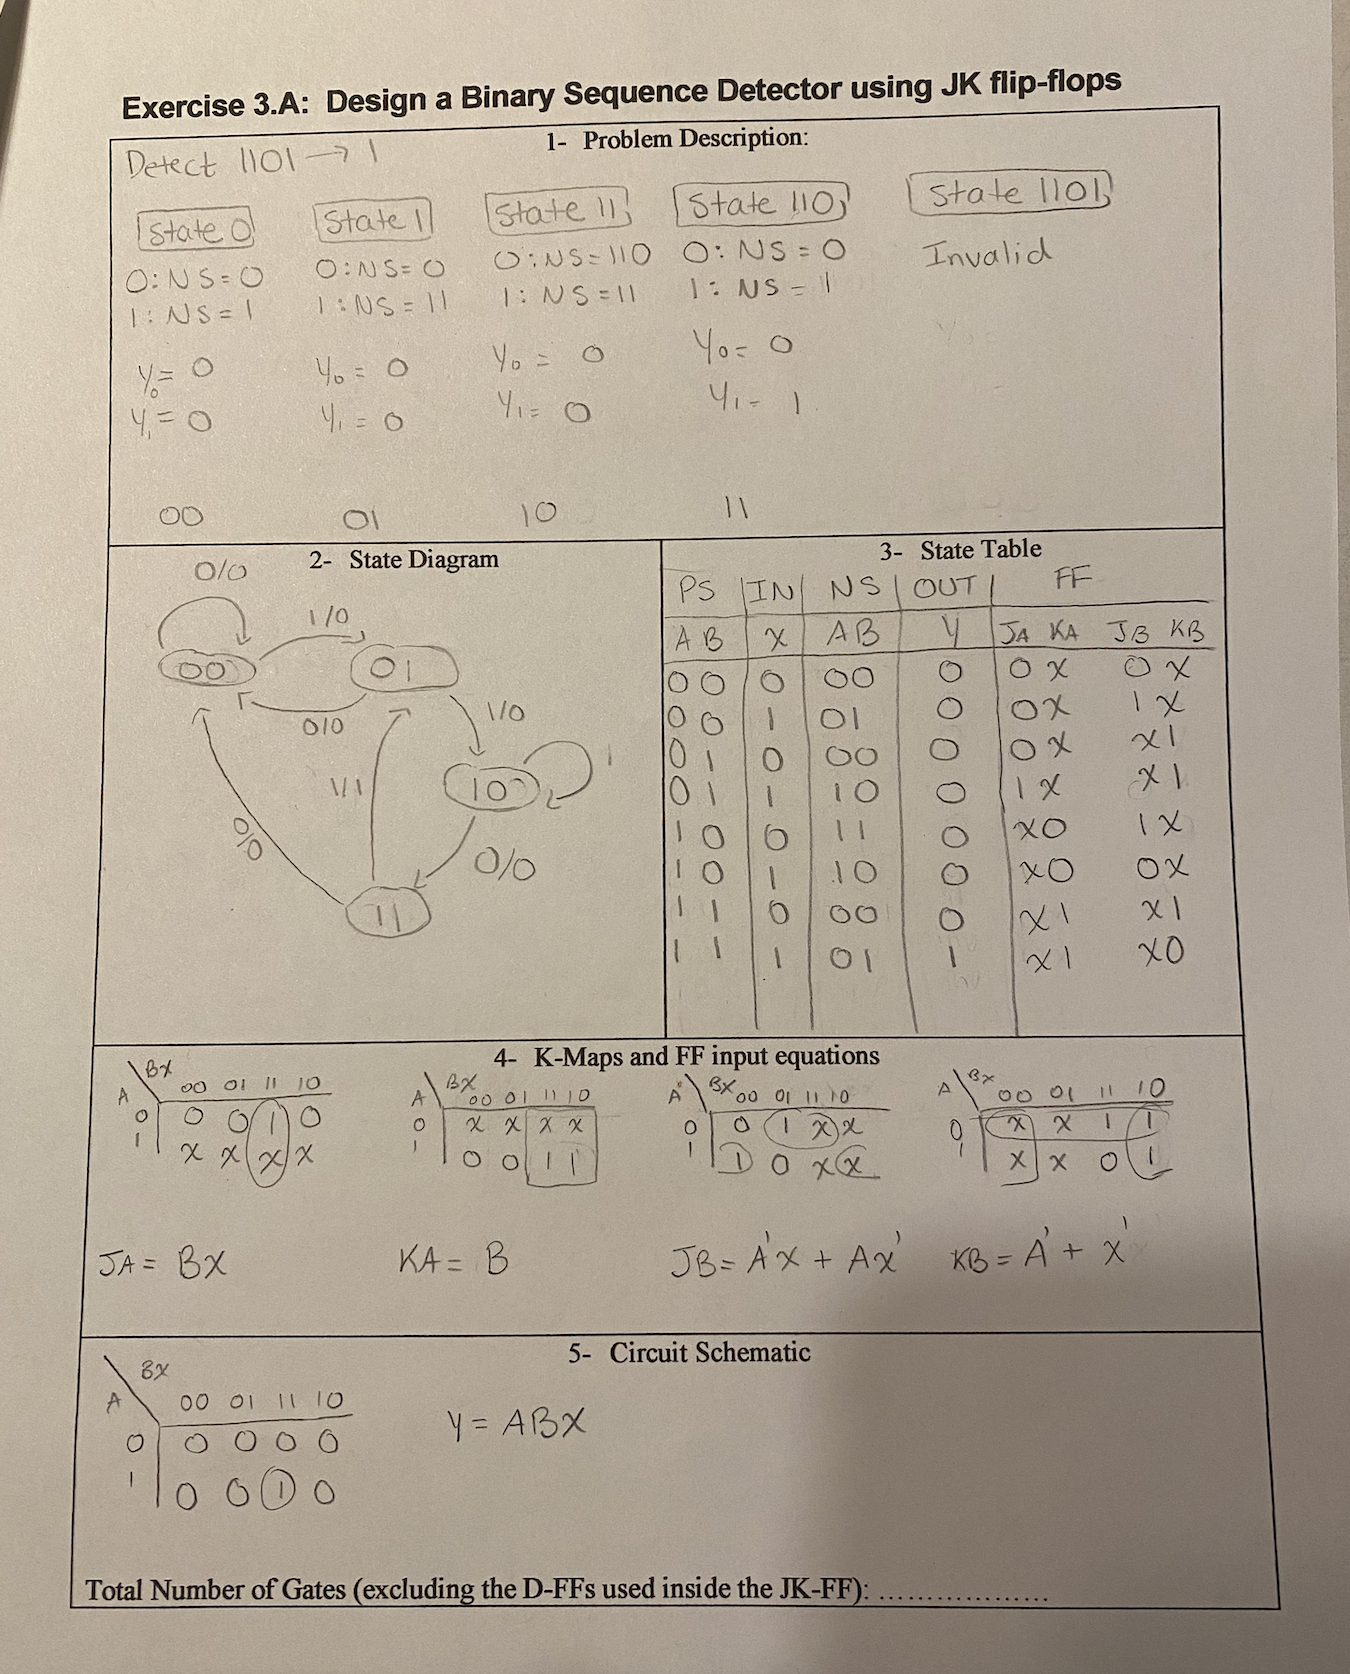 Exercise 3.A: Design a Binary Sequence Detector using JK flip-flops
1- Problem Description:
Detect 1101 → 1
State 0 State 1 State 11 State 110 State 1101
0: NS = 0 0: NS = 0 0: NS = 110 0: NS = 0 Invalid
1: NS = 1 1: NS = 11 1: NS = 11 1: NS = 1
Y₀ = 0 Y₀ = 0 Y₀ = 0 Y₀ = 0
Y₁ = 0 Y₁ = 0 Y₁ = 0 Y₁ = 1
00 01 10 11
2- State Diagram
0/0
1/0
00 01
0/0 1/0
1/1 10 1
0/0 0/0
11
3- State Table
PS IN NS OUT FF
A B X A B Y JA KA JB KB
0 0 0 00 0 0 X 0 X
0 0 1 01 0 0 X 1 X
0 1 0 00 0 0 X X 1
0 1 1 10 0 1 X X 1
1 0 0 11 0 X 0 1 X
1 0 1 10 0 X 0 0 X
1 1 0 00 0 X 1 X 1
1 1 1 01 1 X 1 X 0
4- K-Maps and FF input equations
A \ BX 00 01 11 10
0 0 0 1 0
1 X X X X
A \ BX 00 01 11 10
0 X X X X
1 0 0 1 1
A \ BX 00 01 11 10
0 0 1 X X
1 1 0 X X
A \ BX 00 01 11 10
0 X X 1 1
1 X X 0 1
JA = BX KA = B JB = A'X + AX' KB = A' + X'
5- Circuit Schematic
A \ BX
00 01 11 10
0 0 0 0 0
1 0 0 1 0
Y = ABX
Total Number of Gates (excluding the D-FFs used inside the JK-FF): ...................